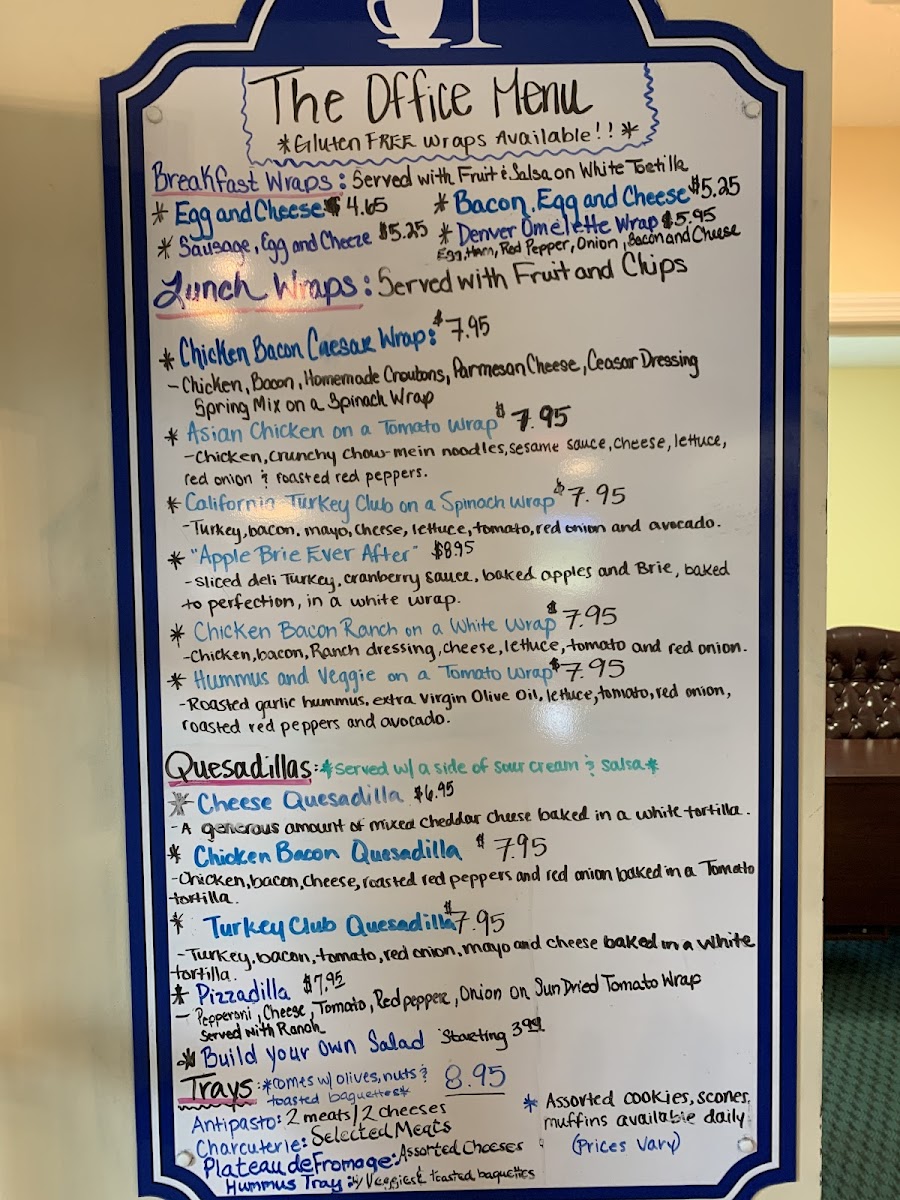 The Office Menu
*Gluten FREE wraps Available!!*
Breakfast Wraps: Served with Fruit & Salsa on White Tortilla
* Egg and Cheese $ 4.65
* Bacon, Egg and Cheese $5.25
* Sausage, Egg and Cheeze $5.25
* Denver Omelette Wrap $5.95
Egg, Ham, Red Pepper, Onion, Bacon and Cheese
Lunch Wraps: Served with Fruit and Chips
* Chicken Bacon Caesar Wrap: $7.95
- Chicken, Bacon, Homemade Croutons, Parmesan Cheese, Ceasar Dressing
Spring Mix on a Spinach Wrap
* Asian Chicken on a Tomato Wrap $7.95
- Chicken, crunchy chow-mein noodles, sesame sauce, cheese, lettuce,
red onion & roasted red peppers.
* California Turkey Club on a Spinach Wrap $7.95
- Turkey, bacon, mayo, cheese, lettuce, tomato, red onion and avocado.
* "Apple Brie Ever After" $8.95
- Sliced deli Turkey, cranberry sauce, baked apples and Brie, baked
to perfection, in a white wrap.
* Chicken Bacon Ranch on a White Wrap $7.95
- Chicken, bacon, Ranch dressing, cheese, lettuce, tomato and red onion.
* Hummus and Veggie on a Tomato Wrap $7.95
- Roasted garlic hummus, extra Virgin Olive Oil, lettuce, tomato, red onion,
roasted red peppers and avocado.
Quesadillas: *Served w/ a side of sour cream & salsa*
* Cheese Quesadilla $6.95
- A generous amount of mixed cheddar cheese baked in a white tortilla.
* Chicken Bacon Quesadilla $7.95
- Chicken, bacon, cheese, roasted red peppers and red onion baked in a Tomato
tortilla.
* Turkey Club Quesadilla $7.95
- Turkey, bacon, tomato, red onion, mayo and cheese baked in a white
tortilla.
* Pizzadilla $7.95
- Pepperoni, Cheese, Tomato, Red pepper, Onion on Sun Dried Tomato Wrap
Served with Ranch
* Build your Own Salad Starting 3.99
Trays: *comes w/ olives, nuts & 8.95
toasted baguettes*
Antipasto: 2 meats / 2 cheeses
Charcuterie: Selected Meats
Plateau de Fromage: Assorted Cheeses
Hummus Tray: w/ Veggies & toasted baguettes
* Assorted cookies, scones,
muffins available daily
(Prices vary)